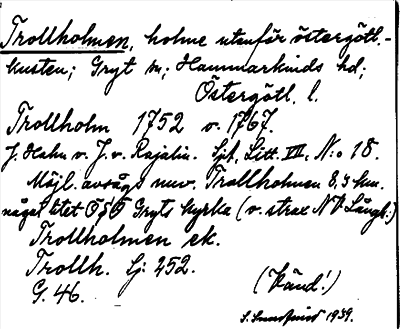 Trollholmen, holme utanför östergötl.-
kusten; Gryt sn; Hammarkinds hd;
Östergötl. l.
Trollholm 1752 o. 1767.
J. Hahn o. J. v. Rajalin. Sjk. Litt. VII. N:o 18.
Möjl. avsågs nuv. Trollholmen 8,3 km.
något litet OSO Gryts kyrka (o. strax NV Långh:)
Trollholmen ek.
Trollh. Sj: 252.
G. 46.
(Känd!)
S. 1939.